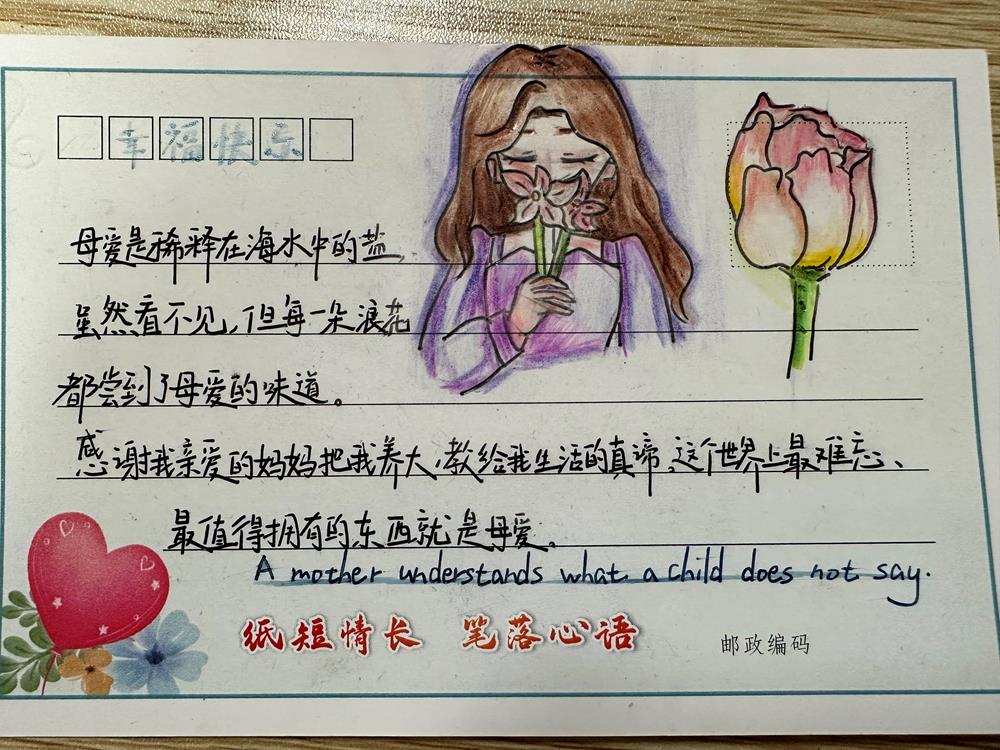 幸福快乐
母爱是稀释在海水中的盐,
虽然看不见,但每一朵浪花
都尝到了母爱的味道。
感谢我亲爱的妈妈把我养大,教给我生活的真谛,这个世界上最难忘、
最值得拥有的东西就是母爱。
A mother understands what a child does not say.
纸短情长 笔落心语
邮政编码